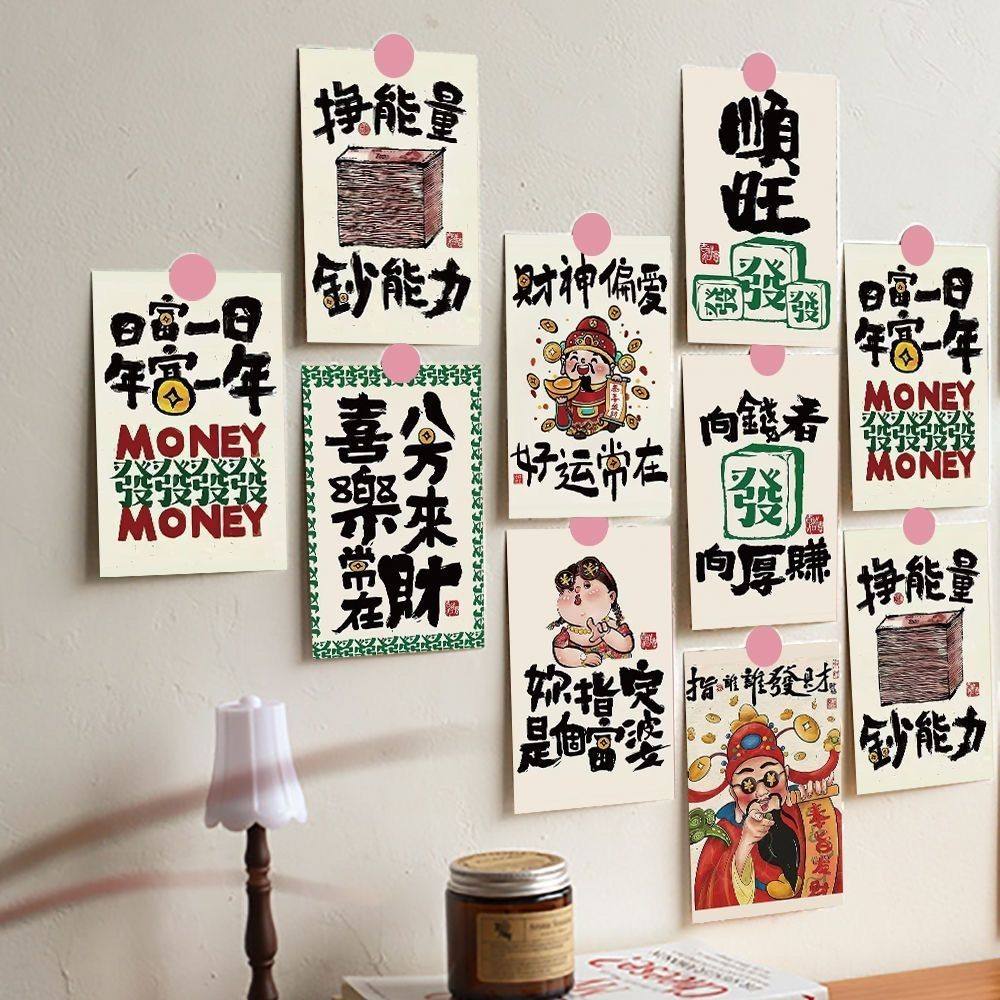 挣能量
鈔能力
順
旺
發
發 發
日富一日
年富一年
MONEY
發發發發
MONEY
八方來財
喜樂常在
財神偏愛
好運常在
向錢看
發
向厚賺
日富一日
年富一年
MONEY
發發發發
MONEY
妳指定
是個富婆
指誰誰發財
奉旨發財
挣能量
鈔能力